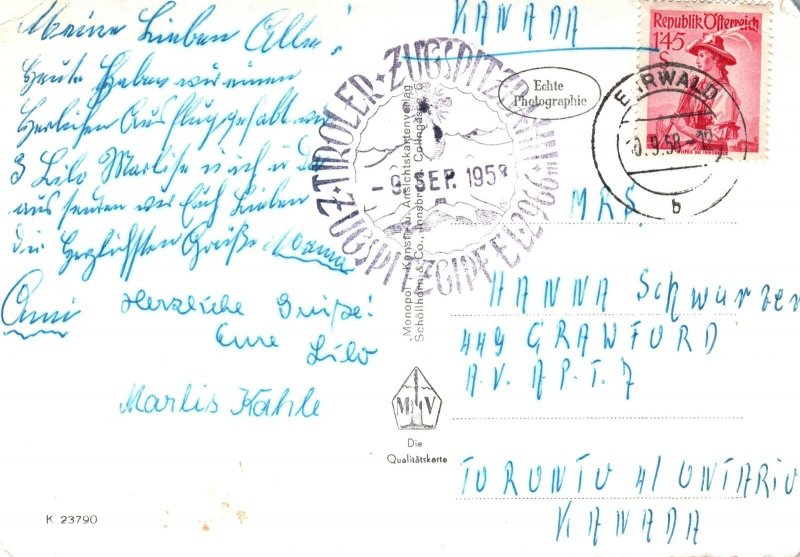 Meine Lieben Alle!
Heute haben wir einen
Herlichen Ausflug gehabt wir
3 Lilo Marlise und ich
aus senden wir Euch Lieben
die Herzlichsten Grüße Mama
Omi
Herzliche Grüße!
Eure
Lilo
Marlis Kahle
K 23790
KANADA
Republik Österreich
1'45
S
Echte
Photographie
EHRWALD
9.58
b
TIROLER · ZUGSPITZBAHN
- 9. SEP. 1958
ZUGSPITZGIPFEL 2966m
"Monopol", Kunst- u. Ansichtskartenverlag
Schöllhorn & Co., Innsbruck, Colingasse
M V
Die
Qualitätskarte
MRS.
HANNA Schwarzer
449 CRAWFORD
A.V. AP.T. 7
TORONTO 4/ ONTARIO
KANADA